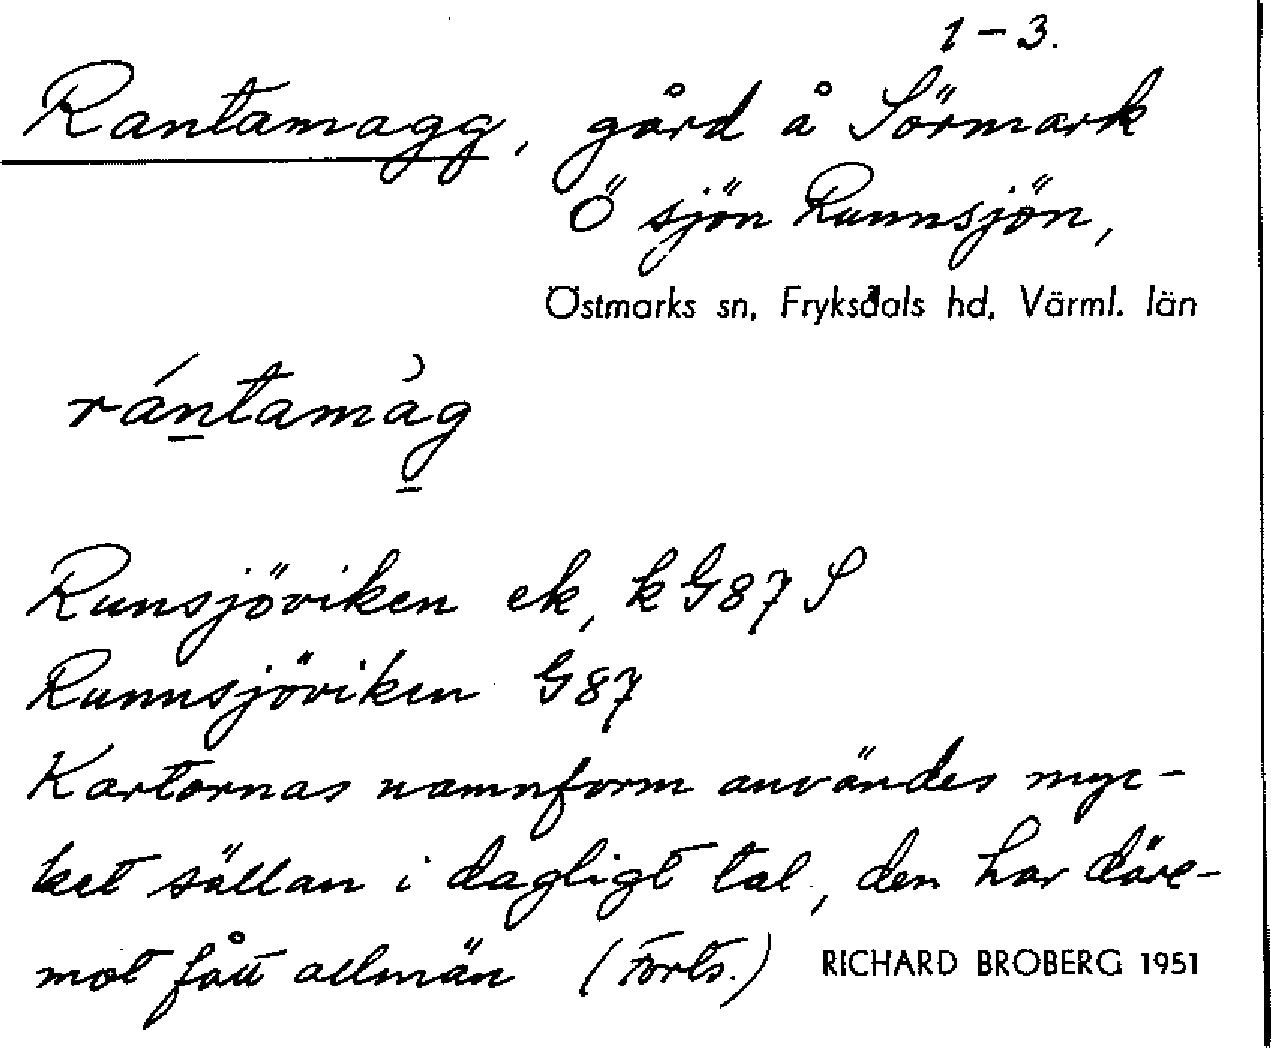 1-3.
Rantamagg, gård å Sörmark
Ö sjön Runnsjön,
Östmarks sn, Fryksdals hd, Värml. län
rántamàg
Runsjöviken ek, k G87 S
Runnsjöviken G87
Kartornas namnform användes myc-
ket sällan i dagligt tal, den har däre-
mot fått allmän (Forts.) RICHARD BROBERG 1951